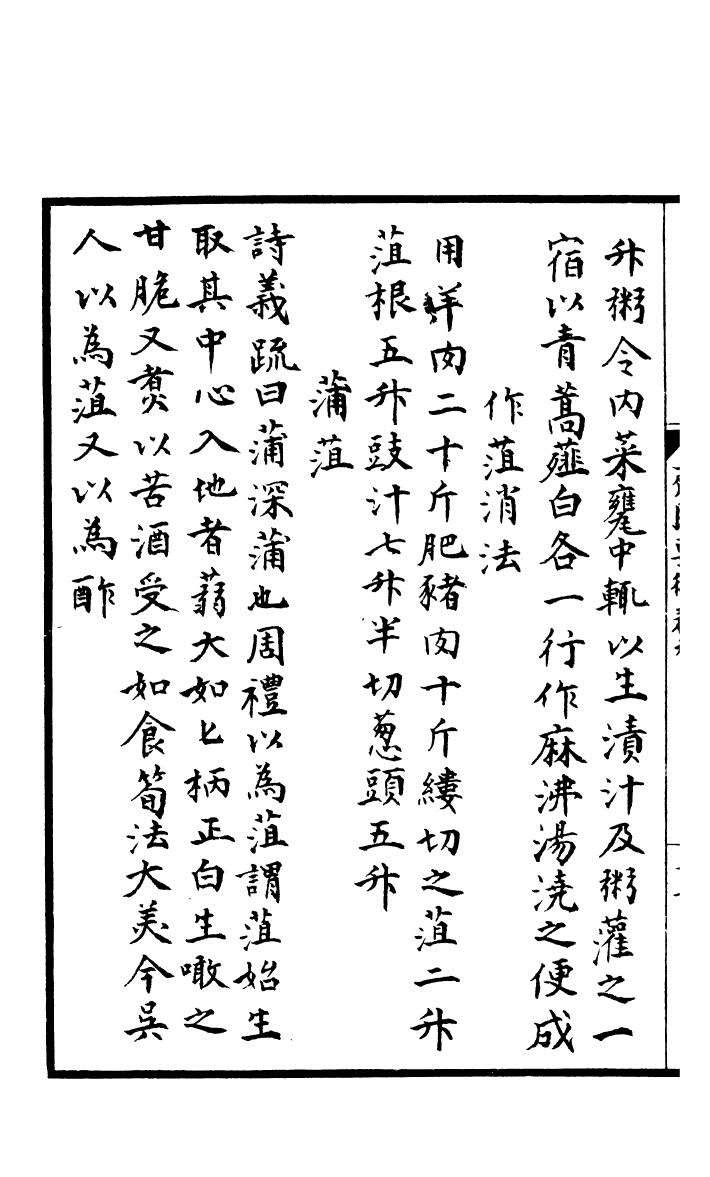 升粥令内菜甕中輒以生漬汁及粥灌之一
宿以青蒿薤白各一行作麻沸湯澆之便成
作菹消法
用羊肉二十斤肥豬肉十斤縷切之菹二升
菹根五升豉汁七升半切葱頭五升
蒲菹
詩義疏曰蒲深蒲也周禮以為菹謂菹始生
取其中心入地者蒻大如匕柄正白生噉之
甘脆又煑以苦酒受之如食筍法大美今吳
人以為菹又以為酢